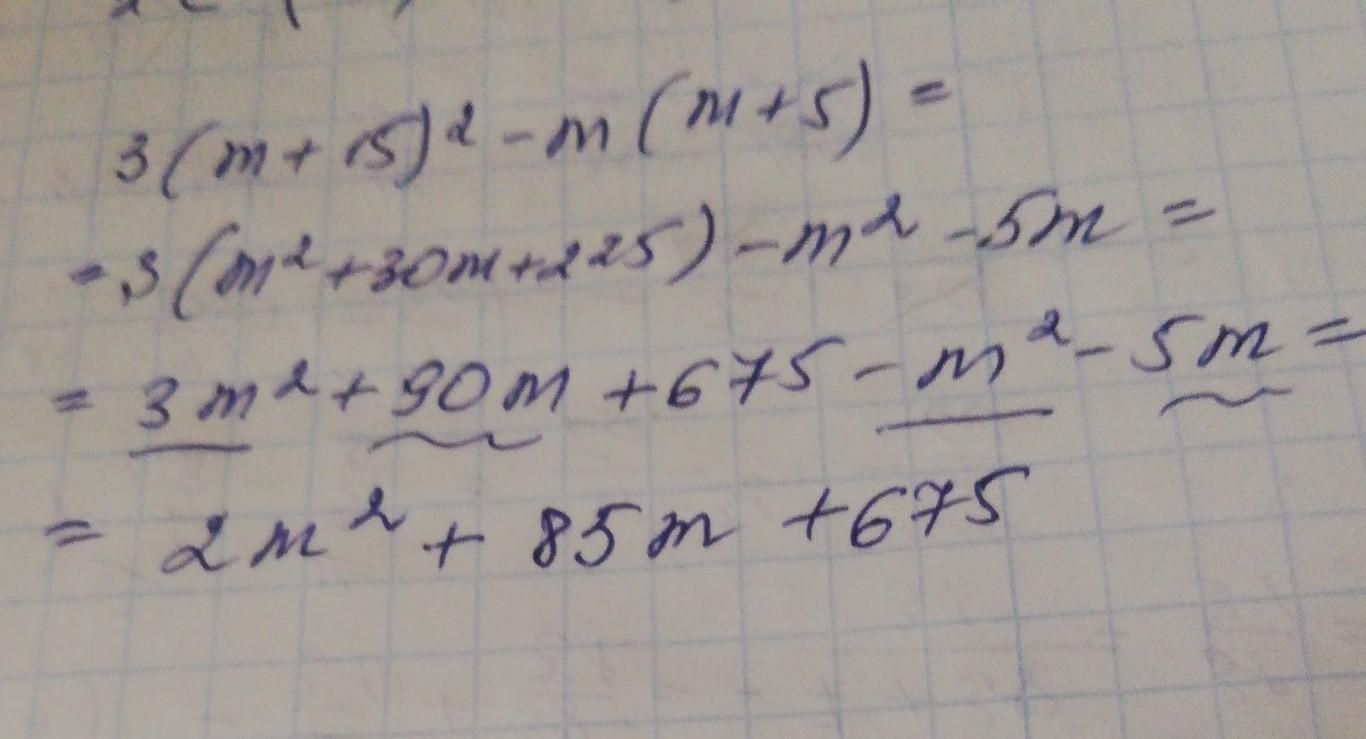 3(m+15)² - m(m+5) =
= 3(m²+30m+225) - m² - 5m =
= 3m² + 90m + 675 - m² - 5m =
= 2m² + 85m + 675